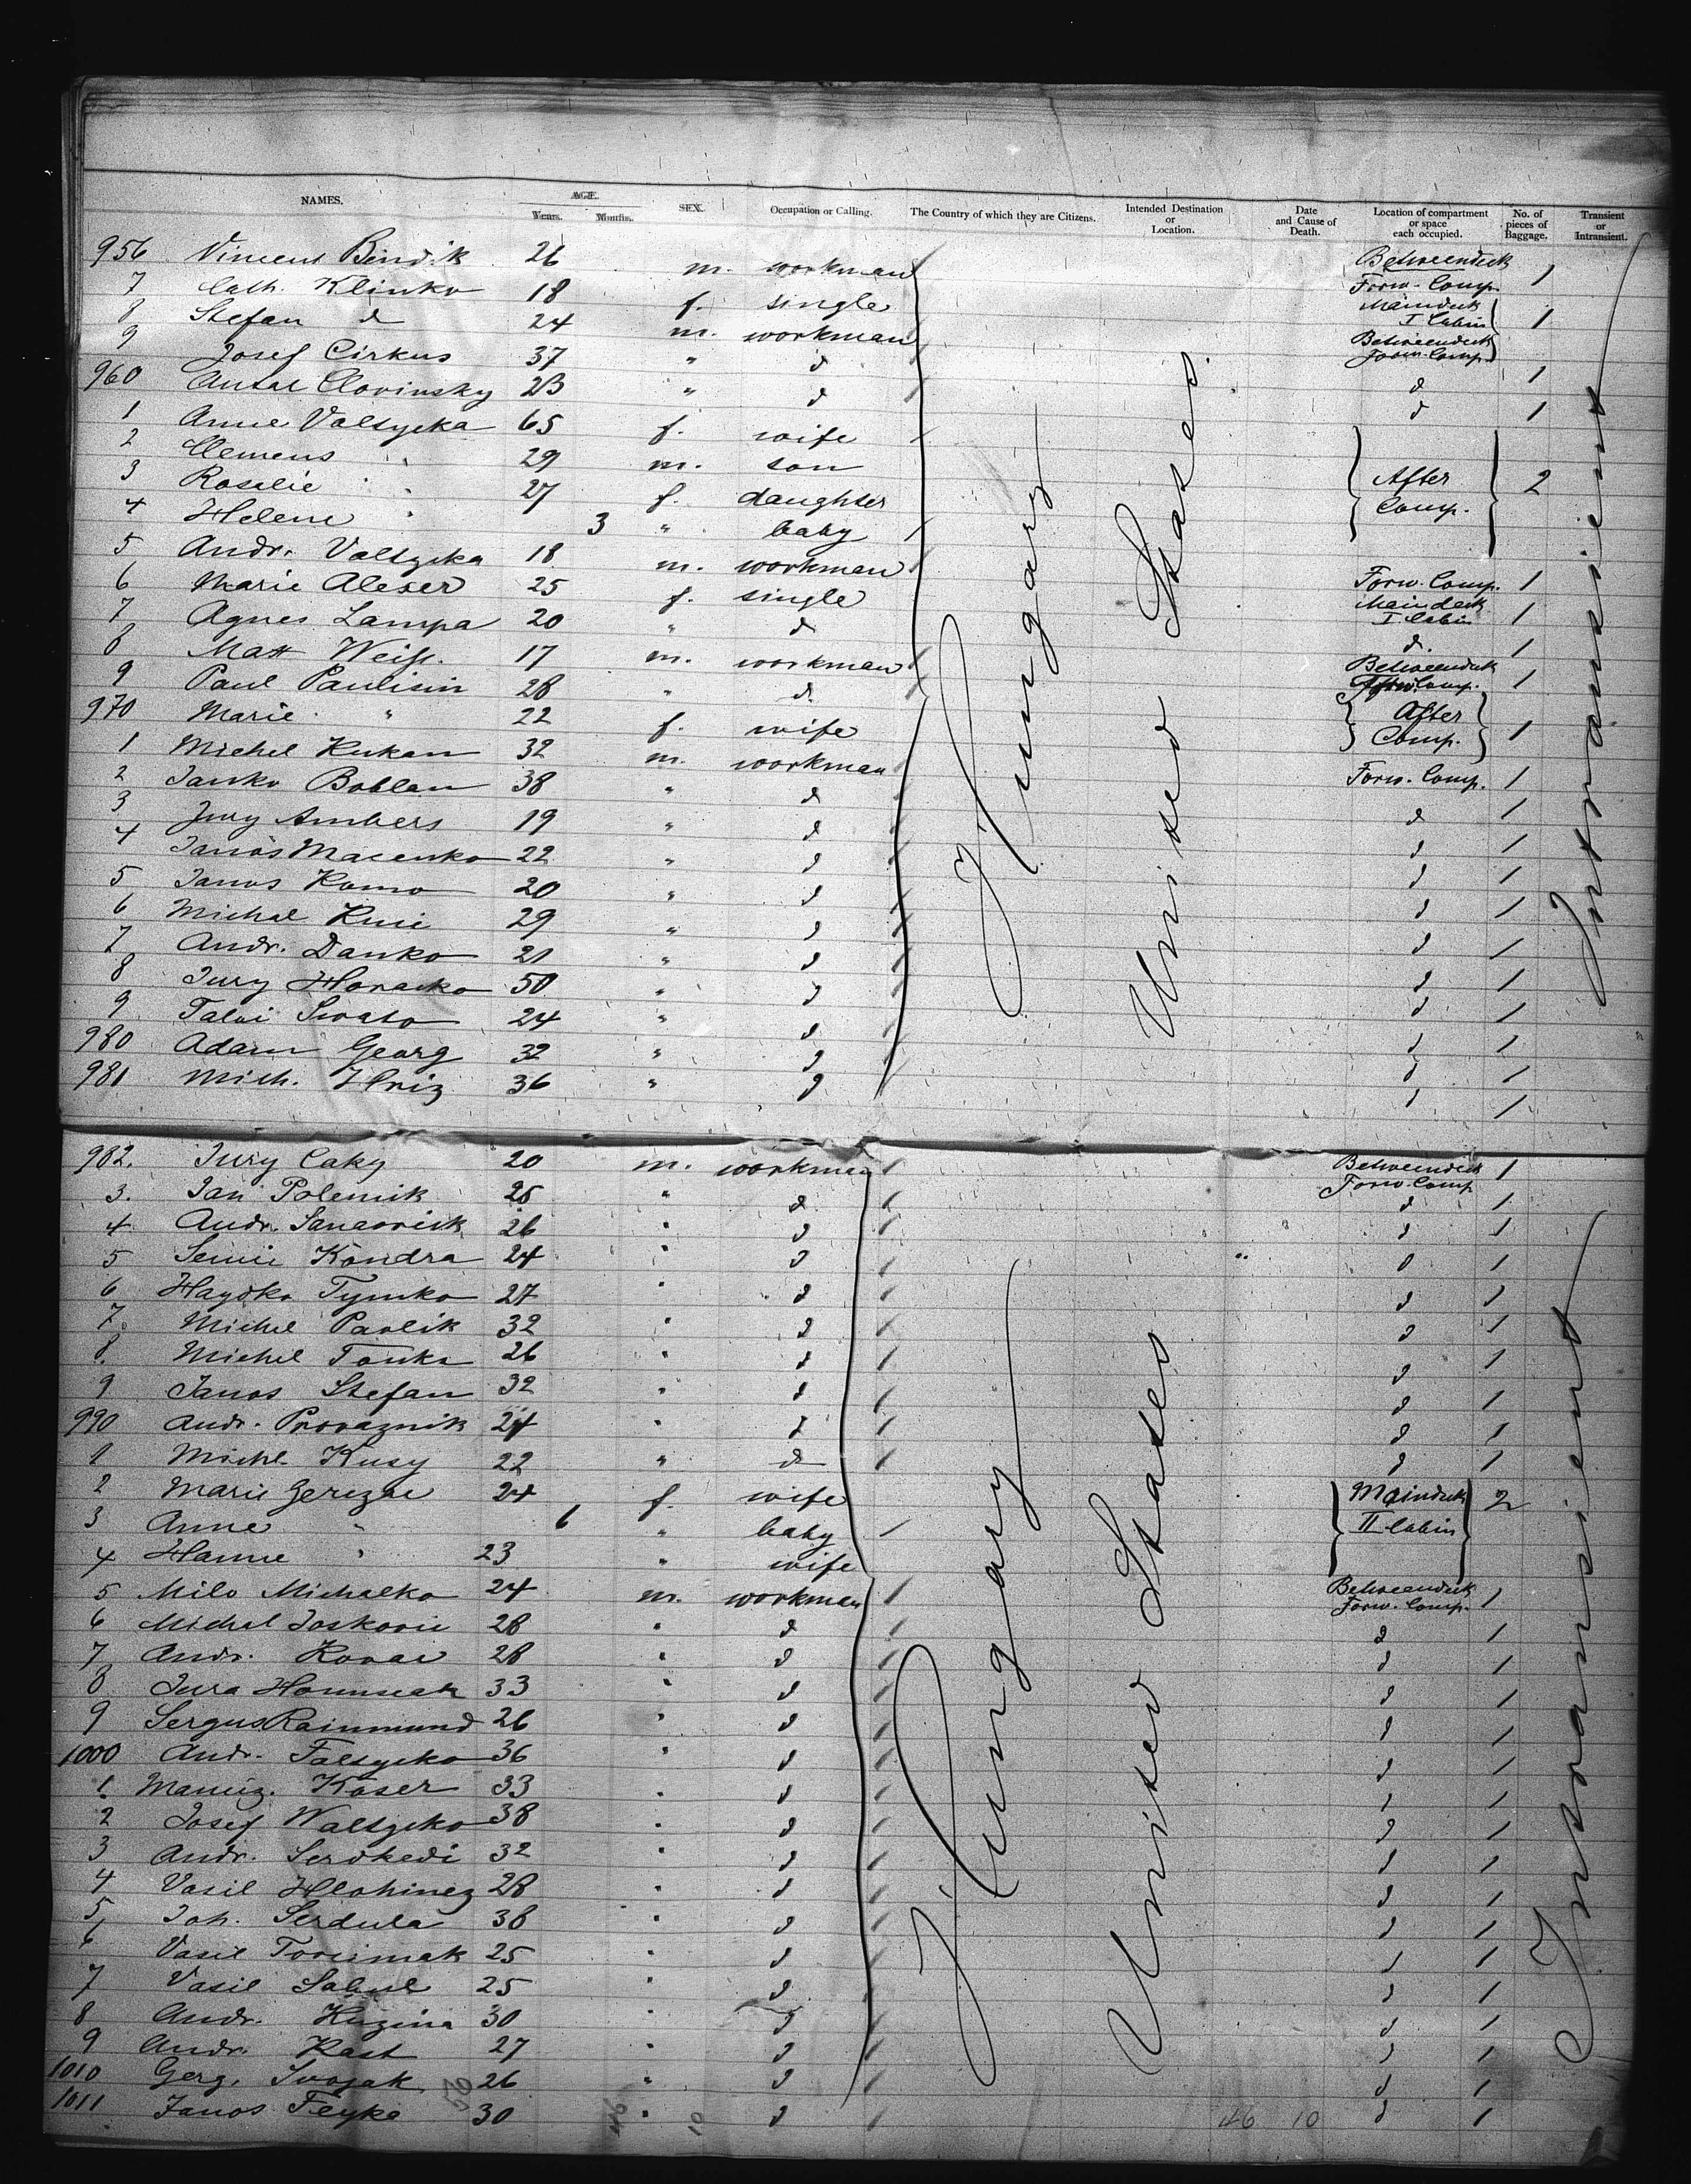 NAMES. AGE. Years. Months. SEX. Occupation or Calling. The Country of which they are Citizens. Intended Destination or Location. Date and Cause of Death. Location of compartment or space each occupied. No. of pieces of Baggage. Transient or Intransient.
956 Vincent Bindik 26 m. workman Betweendeck Forw. Comp. 1
7 Cath. Klinko 18 f. single Maindeck I Cabin 1
8 Stefan d 24 m. workman Betweendeck Forw. Comp.
9 Josef Cirkus 37 " d d 1
960 Antal Clovinsky 23 " d d 1
1 Anne Valsycka 65 f. wife
2 Clemens " 29 m. son After Comp. 2
3 Rosalie " 27 f. daughter
4 Helene " 3 " baby
5 Andr. Valsycka 18 m. workman Forw. Comp. 1
6 Marie Aleser 25 f. single Maindeck I Cabin 1
7 Agnes Lampa 20 " d d. 1
8 Matt Weiss. 17 m. workman Betweendeck Comp. 1
9 Paul Paulisin 28 " d.
970 Marie " 22 f. wife After Comp. 1
1 Michel Kukan 32 m. workman Forw. Comp. 1
2 Janko Boblan 38 " d d 1
3 Jury Ambers 19 " d d 1
4 Janos Macenko 22 " d d 1
5 Janos Komo 20 " d d 1
6 Michal 29 " d d 1
7 Andr. Danko 21 " d d 1
8 Jury Horacko 50 " d d 1
9 24 " d d 1
980 Adam Georg 32 " d d 1
981 Mich. Hriz 36 " d d 1
Hungary
United States
Intransient
982. Jury Caky 20 m. workman Betweendeck Forw. Comp 1
3. Jan Polemik 25 " d d 1
4 Andr. 26 " d d 1
5 Kondra 24 " d d 1
6 Haydko Tymko 27 " d d 1
7. Michel Pavlik 32 " d d 1
8. Michel Tonka 26 " d d 1
9 Janos Stefan 32 " d d 1
990 Andr. Provaznik 24 " d d 1
1 Michl Kusy 22 " d d 1
2 Marie Gerezne 24 f. wife Maindeck II Cabin 2
3 Anne " 6 " baby
4 Hanne " 23 " wife
5 Milo Michalko 24 m. workman Betweendeck Forw. Comp. 1
6 Michal Joskovic 28 " d d 1
7 Andr. Kovac 28 " d d 1
8 Jura 33 " d d 1
9 Sergus Rainmund 26 " d d 1
1000 Andr. Falsycko 36 " d d 1
1. Koser 33 " d d 1
2 Josef Walsycko 38 " d d 1
3 Andr. Serdkedi 32 " d d 1
4 Vasil Hlohinez 28 " d d 1
5 Joh. Serdula 38 " d d 1
6 Vasil 25 " d d 1
7 Vasil 25 " d d 1
8 Andr. Huzina 30 " d d 1
9 Andr. Kast 27 " d d 1
1010 Gerg. Svojak 26 " d d 1
1011 Janos Feyke 30 " d d 1
Hungary
United States
Intransient
46 10